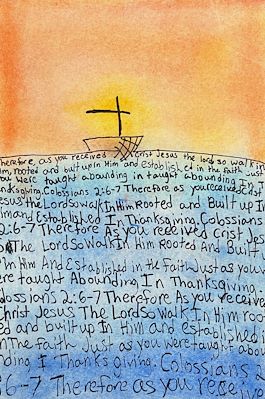 Therefore, as you received Christ Jesus the lord so walk in
Him, rooted and built up in Him and Established in the faith Just
You Were taught abounding in taught abounding In T
anksgiving. Colossians 2:6-7 Therefore as you received Christ
Jesus the Lord so Walk In Him Rooted and Built up In
Him and Established In Thanksgiving. Colossians
2:6-7 Therefore As you received Crist Jes
The Lord so Walk In Him Rooted And Built
P In Him And Established in the Faith Just as you We
re taught Abounding, In Thanksgiving
olossians 2:6-7 Therefore As you Receive
Christ Jesus The Lord So Walk In Him root
ed and built up In Him and established i
n The faith Just as you were taught abou
nding I Thanks giving. Colossians 2
:6-7 Therefore as you receive